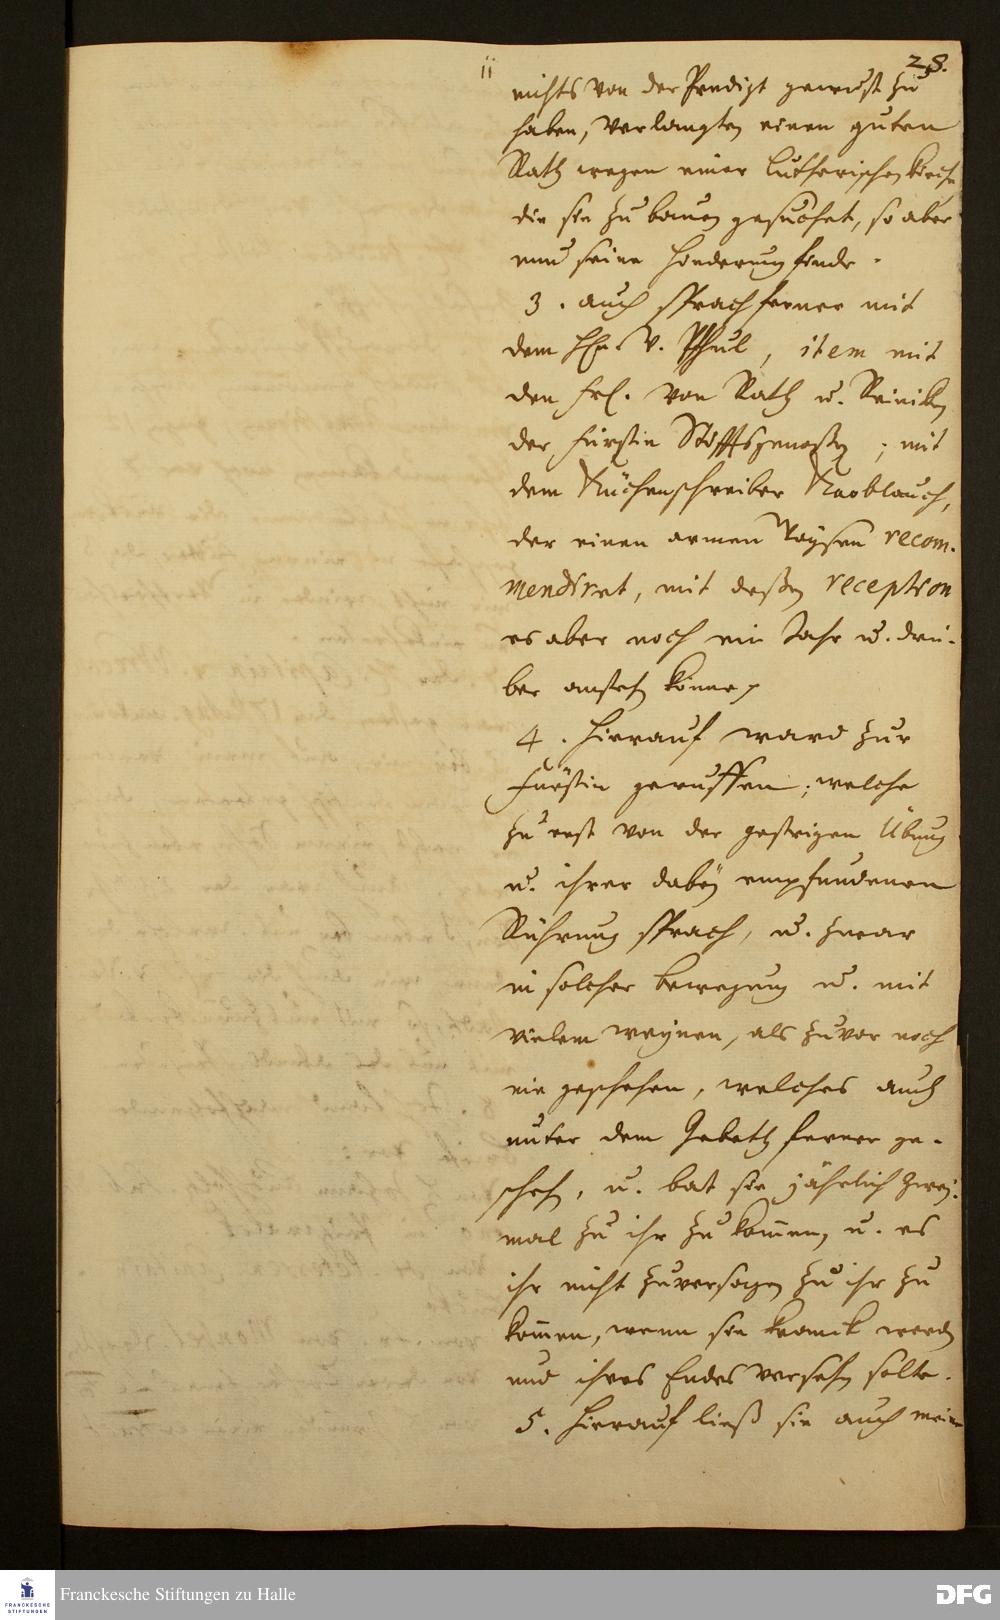 28.
nichts von der Predigt gewust zu
haben, verlangten einen guten
Rath wegen einer Lutherischen Kirche
die sie zu bauen gesuchet, so aber
nun seine Hinderung finde.
3. auch sprach ferner mit
dem Hn. v. Pfhul, item mit
den Frl. von Rath u. Reiniken
der Fürstin Stifftsgenoßen; mit
dem Küchenschreiber Knoblauch,
der einen armen Waysen recom-
mendiret, mit deßen reception
es aber noch ein Jahr u. drü-
ber anstehen könne.
4. Hierauf ward zur
Fürstin geruffen; welche
zu erst von der gestrigen Übung
u. ihrer dabey empfundenen
Rührung sprach, u. zwar
in solcher bewegung u. mit
vielem weynen, als zuvor noch
nie geschehen, welches auch
unter dem Gebeth ferner ge-
schehen, u. bat sie jährlich zwey-
mal zu ihr zu kommen, u. es
ihr nicht zuversagen zu ihr zu
kommen, wenn sie kranck werden
und ihres Endes versehen solte.
5. Hierauf ließ sie auch meine
Franckesche Stiftungen zu Halle
FRANCKESCHE
STIFTUNGEN
DFG